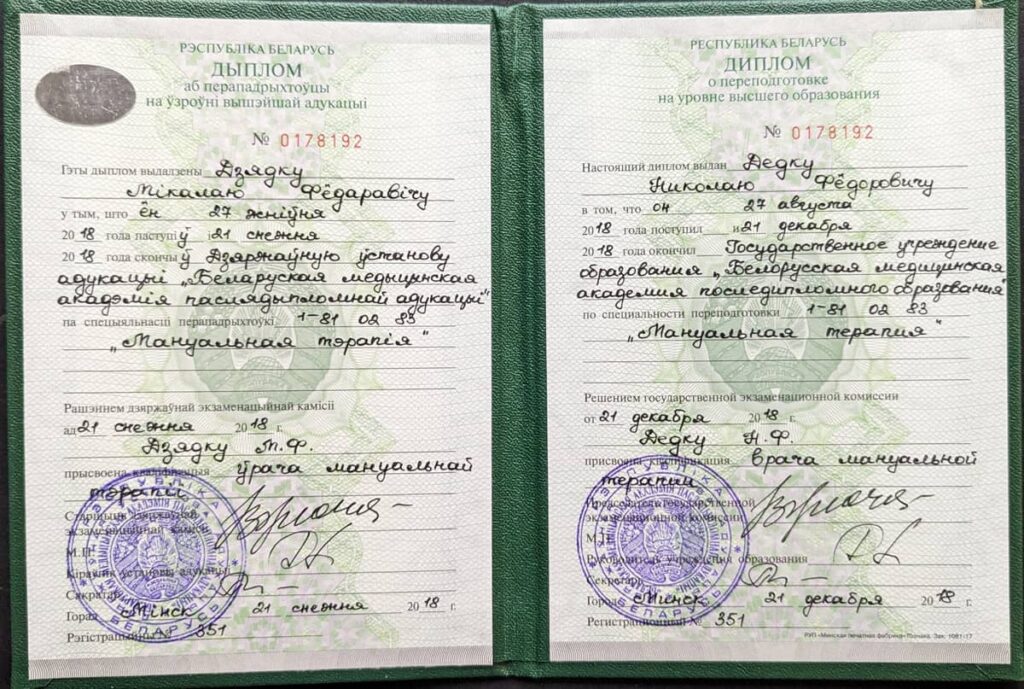 РЭСПУБЛІКА БЕЛАРУСЬ
ДЫПЛОМ
аб перападрыхтоўцы
на ўзроўні вышэйшай адукацыі
№ 0178192
Гэты дыплом выдадзены Дзядку
Мікалаю Фёдаравічу
у тым, што ён 27 жніўня
2018 года паступіў і 21 снежня
2018 года скончыў Дзяржаўную ўстанову
адукацыі „Беларуская медыцынская
акадэмія паслядыпломнай адукацыі"
па спецыяльнасці перападрыхтоўкі 1-81 02 83
„Мануальная тэрапія"
Рашэннем дзяржаўнай экзаменацыйнай камісіі
ад 21 снежня 2018 г.
Дзядку М.Ф.
прысвоена кваліфікацыя ўрача мануальнай
тэрапіі
Старшыня дзяржаўнай
экзаменацыйнай камісіі
М.П.
Кіраўнік установы адукацыі
Сакратар
Горад Мінск 21 снежня 2018 г.
Рэгістрацыйны № 351
РЭСПУБЛІКА БЕЛАРУСЬ
РЕСПУБЛИКА БЕЛАРУСЬ
ДИПЛОМ
о переподготовке
на уровне высшего образования
№ 0178192
Настоящий диплом выдан Дедку
Николаю Фёдоровичу
в том, что он 27 августа
2018 года поступил и 21 декабря
2018 года окончил Государственное учреждение
образования „Белорусская медицинская
академия последипломного образования"
по специальности переподготовки 1-81 02 83
„Мануальная терапия"
Решением государственной экзаменационной комиссии
от 21 декабря 2018 г.
Дедку Н.Ф.
присвоена квалификация врача мануальной
терапии
Председатель государственной
экзаменационной комиссии
М.П.
Руководитель учреждения образования
Секретарь
Город Минск 21 декабря 2018 г.
Регистрационный № 351
РЭСПУБЛІКА БЕЛАРУСЬ
РУП «Минская печатная фабрика» Гознака. Зак. 1081-17